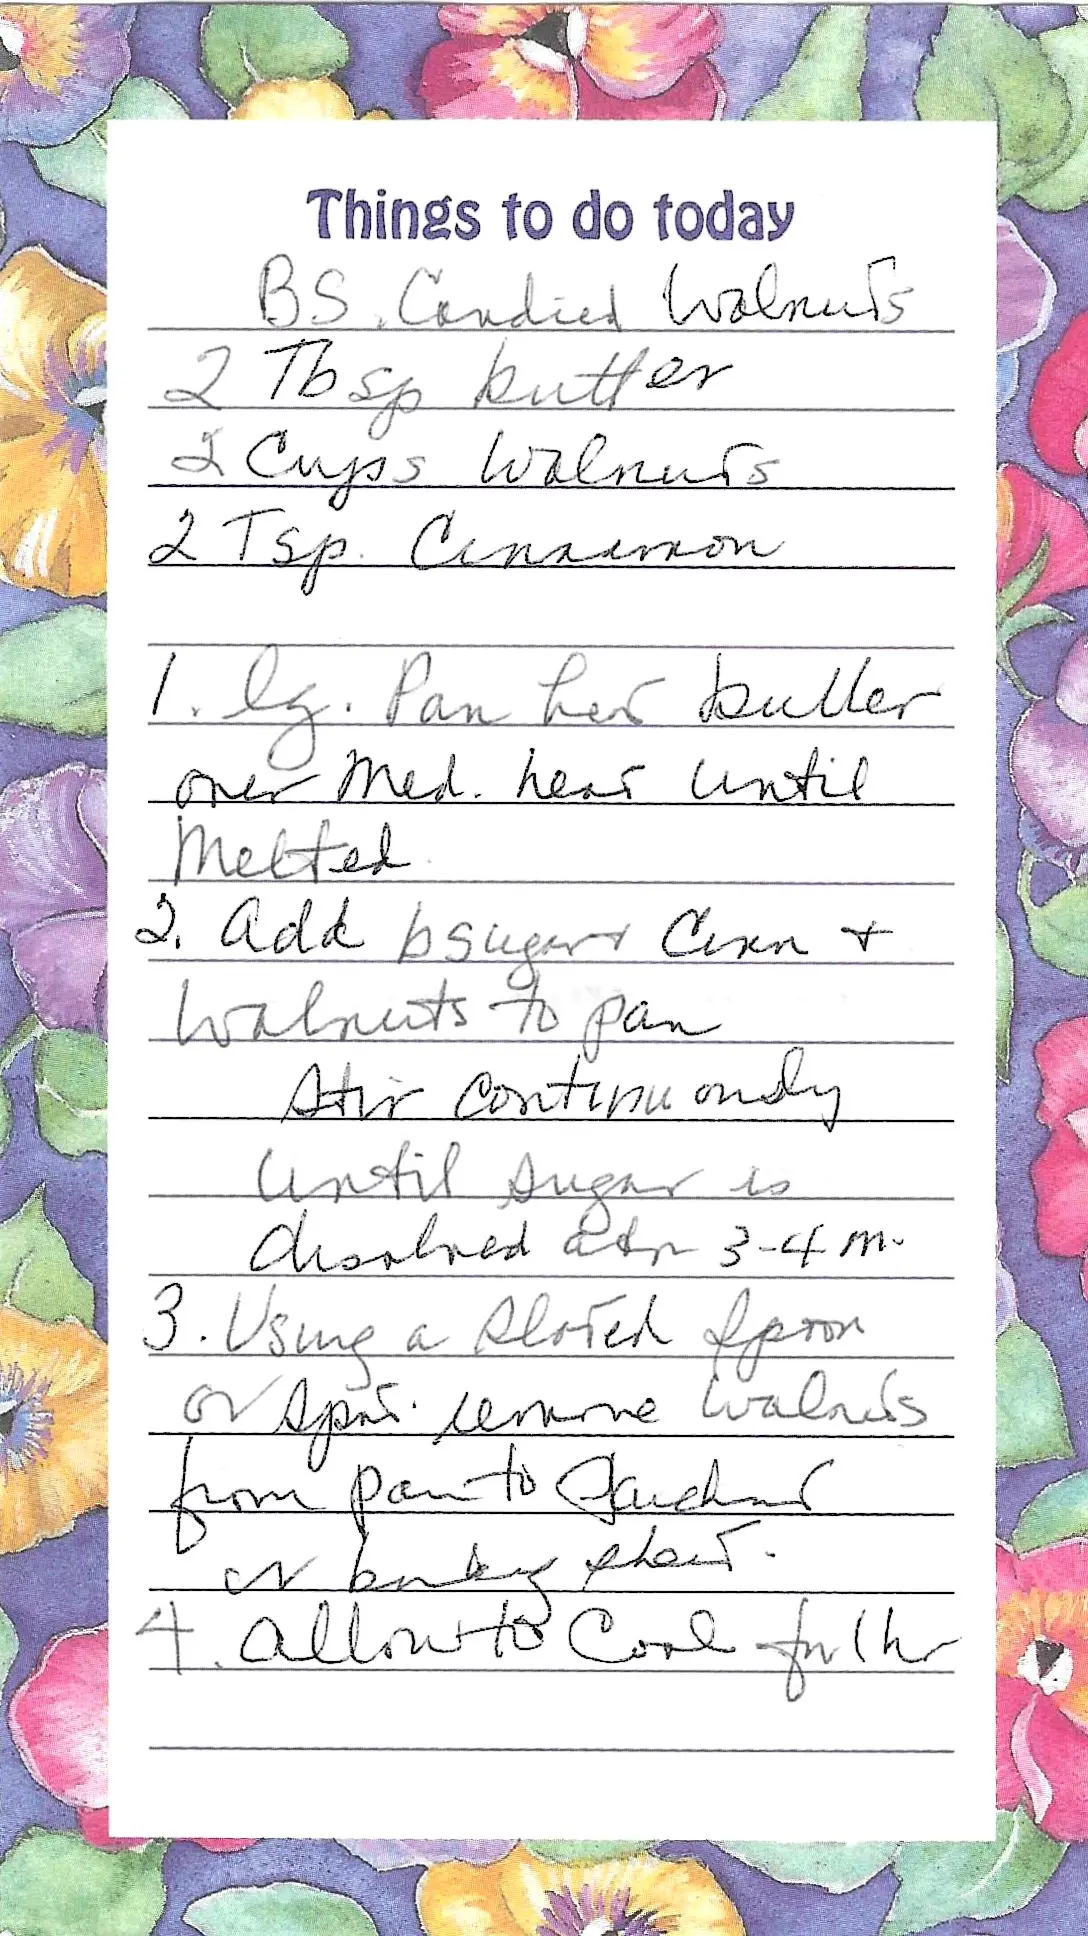 Things to do today
BS. Candied Walnuts
2 Tbsp butter
2 Cups Walnuts
2 Tsp. Cinnamon
1. lg. Pan heat butter
over Med. heat until
Melted
2. Add b sugar + Cinn +
Walnuts to pan
Stir continuously
until sugar is
dissolved 3-4 m.
3. Using a Slotted Spoon
or Spat. remove Walnuts
from pan to Parchment
or baking sheet.
4. Allow to Cool for 1 hr